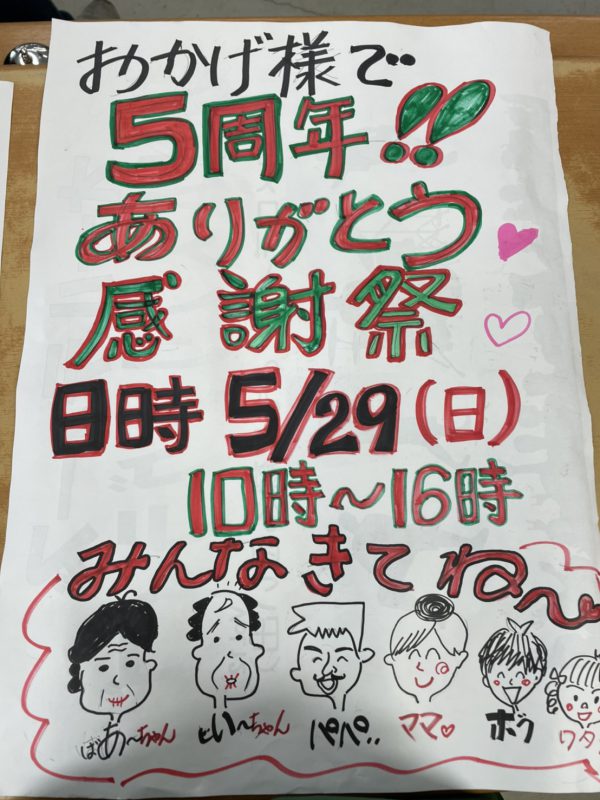 おかげ様で
5周年!!
ありがとう
感謝祭
日時 5/29(日)
10時〜16時
みんなきてね〜
ばあ〜ちゃん じい〜ちゃん パパ.. ママ♡ ボク ワタ